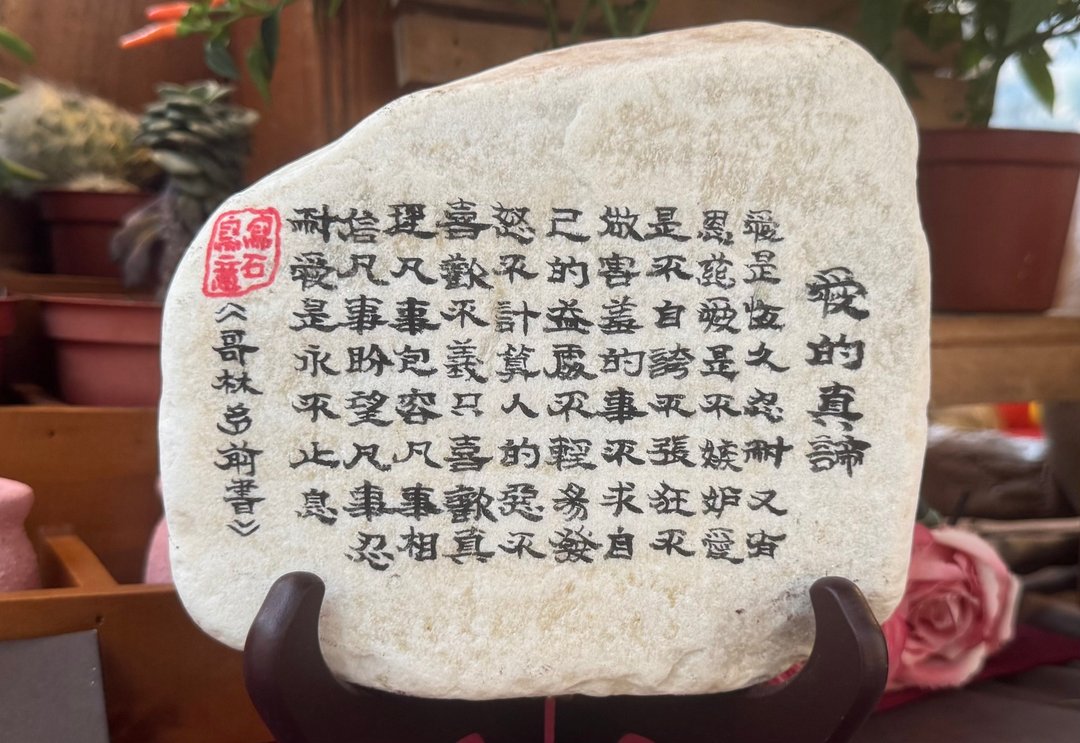 愛的真諦
愛是恆久忍耐又有
恩慈愛是不嫉妒愛
是不自誇不張狂不
做害羞的事不求自
己的益處不輕易發
怒不計算人的惡不
喜歡不義只喜歡真
理凡事包容凡事相
信凡事盼望凡事忍
耐愛是永不止息
《哥林多前書》